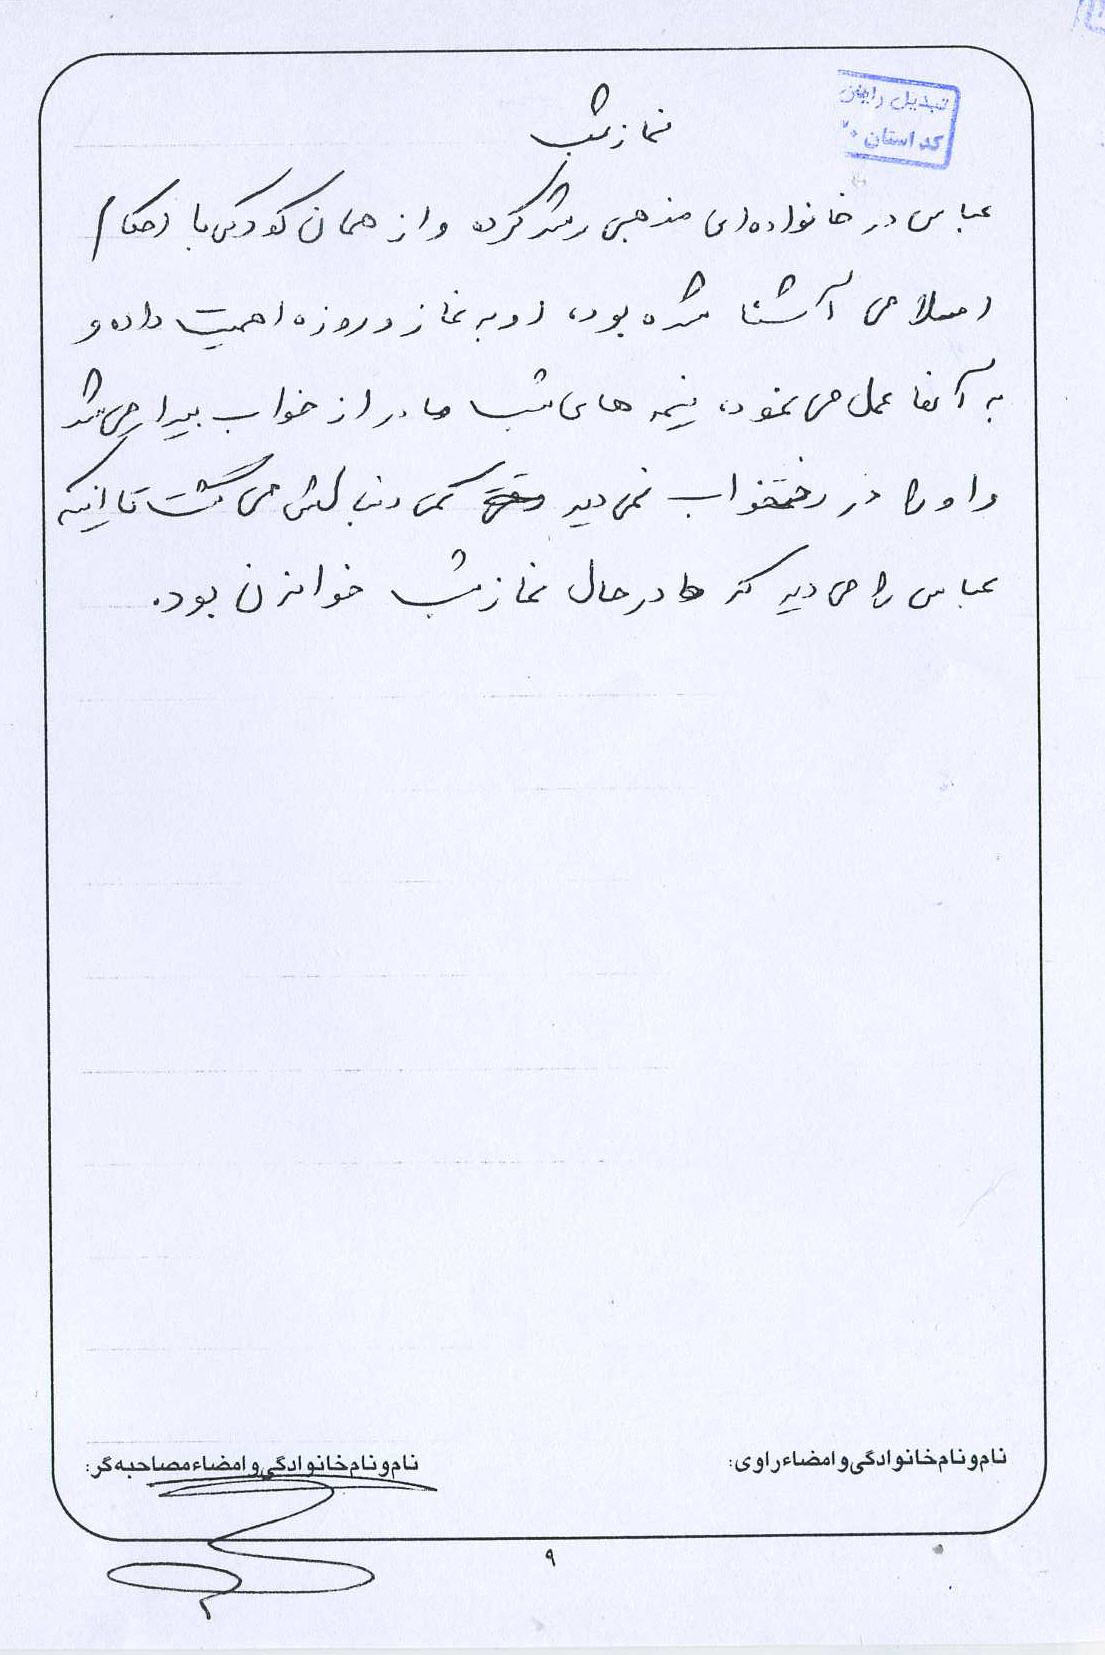 نماز شب
تبدیل رایان
کد استان ۲۰
عباس در خانواده‌ای مذهبی رشد کرده و از همان کودکی با احکام
اسلامی آشنا شده بود، او به نماز و روزه اهمیت داده و
به آنها عمل می نمود، نیمه های شب مادر از خواب بیدار می شد
و او را در رختخواب نمی دید کمی دنبالش می گشت تا اینکه
عباس را می دید که در حال نماز شب خواندن بود.
نام و نام خانوادگی و امضاء راوی:
نام و نام خانوادگی و امضاء مصاحبه‌گر:
۹